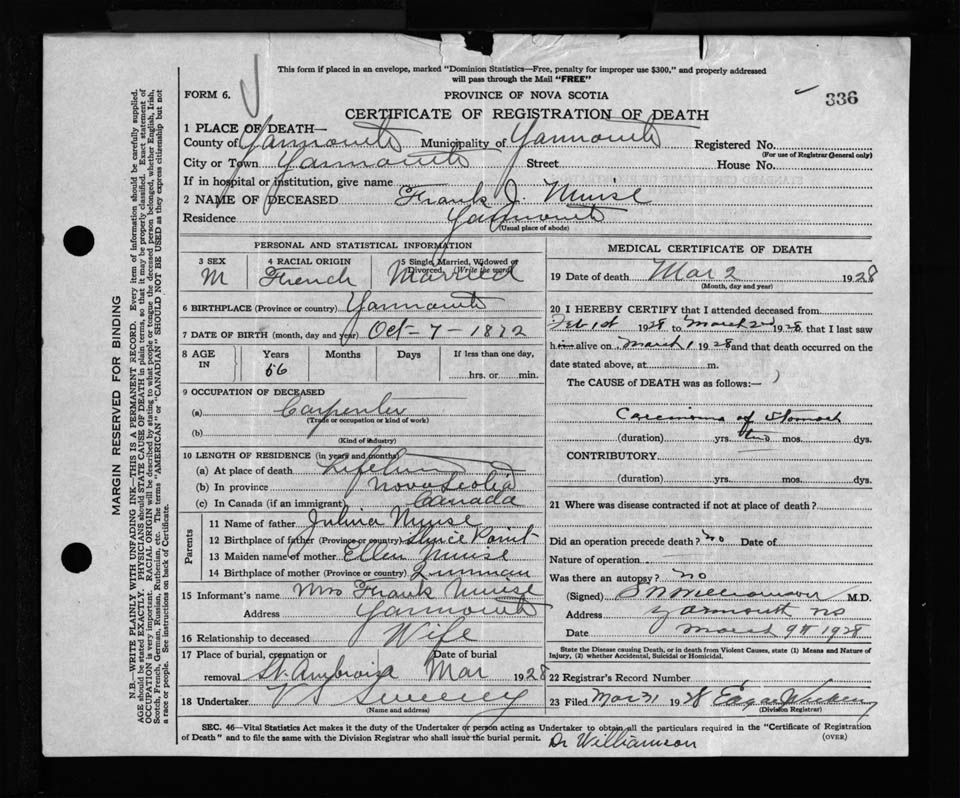 This form if placed in an envelope, marked "Dominion Statistics—Free, penalty for improper use $300," and properly addressed
will pass through the Mail "FREE"
FORM 6.
PROVINCE OF NOVA SCOTIA
336
CERTIFICATE OF REGISTRATION OF DEATH
1 PLACE OF DEATH—
County of Yarmouth Municipality of Yarmouth Registered No.
(For use of Registrar General only)
City or Town Yarmouth Street House No.
If in hospital or institution, give name
2 NAME OF DECEASED Frank J. Muise
Residence Yarmouth
(Usual place of abode)
PERSONAL AND STATISTICAL INFORMATION
3 SEX 4 RACIAL ORIGIN 5 Single, Married, Widowed or Divorced (Write the word)
M French Married
6 BIRTHPLACE (Province or country) Yarmouth
7 DATE OF BIRTH (month, day and year) Oct-7-1872
8 AGE IN Years Months Days If less than one day,
56 hrs. or min.
9 OCCUPATION OF DECEASED
(a) Carpenter
(Trade or occupation or kind of work)
(b)
(Kind of industry)
10 LENGTH OF RESIDENCE (in years and months)
(a) At place of death Lifetime
(b) In province Nova Scotia
(c) In Canada (if an immigrant) Canada
Parents
11 Name of father Muise
12 Birthplace of father (Province or country) Sluice Point
13 Maiden name of mother Ellen Muise
14 Birthplace of mother (Province or country)
15 Informant's name Mrs Frank Muise
Address Yarmouth
16 Relationship to deceased Wife
17 Place of burial, cremation or removal Date of burial
St. Ambroise Mar 1928
18 Undertaker V S Sweeney
MEDICAL CERTIFICATE OF DEATH
19 Date of death Mar 2 1928
(Month, day and year)
20 I HEREBY CERTIFY that I attended deceased from
Feb 1st 1928 to March 2nd 1928, that I last saw
him alive on March 1 1928 and that death occurred on the
date stated above, at m.
The CAUSE of DEATH was as follows:—
Carcinoma of Stomach
(duration) yrs. two mos. dys.
CONTRIBUTORY
(duration) yrs. mos. dys.
21 Where was disease contracted if not at place of death?
Did an operation precede death? no Date of
Nature of operation
Was there an autopsy? no
(Signed) Williamson M.D.
Address Yarmouth NS
Date March 9th 1928
State the Disease causing Death, or in death from Violent Causes, state (1) Means and Nature of
Injury, (2) whether Accidental, Suicidal or Homicidal.
22 Registrar's Record Number
23 Filed Mar 31 1928
(Division Registrar)
SEC. 46—Vital Statistics Act makes it the duty of the Undertaker or person acting as Undertaker to obtain all the particulars required in the "Certificate of Registration
of Death" and to file the same with the Division Registrar who shall issue the burial permit.
(OVER)
Dr Williamson
MARGIN RESERVED FOR BINDING
N.B.—WRITE PLAINLY WITH UNFADING INK—THIS IS A PERMANENT RECORD. Every item of information should be carefully supplied.
AGE should be stated EXACTLY. PHYSICIANS should STATE CAUSE OF DEATH in plain terms, so that it may be properly classified. Exact statement of
OCCUPATION is very important. RACIAL ORIGIN will be described by stating to what people or tongue the deceased person belonged, whether English, Irish,
Scotch, French, German, Russian, Ruthenian, etc. The terms "AMERICAN" or "CANADIAN" SHOULD NOT BE USED as they express citizenship but not
a race or people. See instructions on back of Certificate.